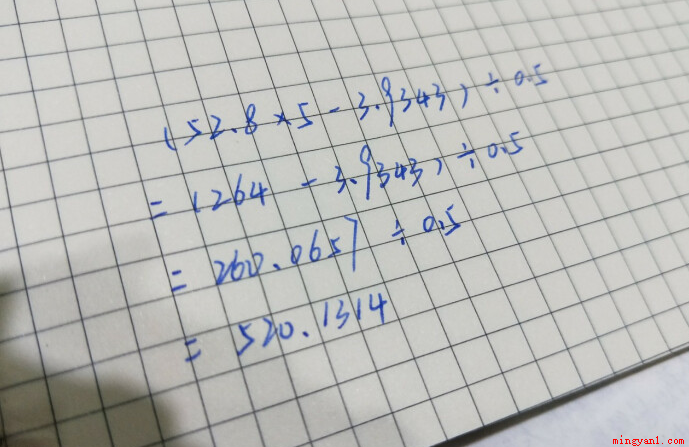 (52.8×5-3.9343)÷0.5
=(264-3.9343)÷0.5
=260.0657÷0.5
=520.1314
mingyanl.com